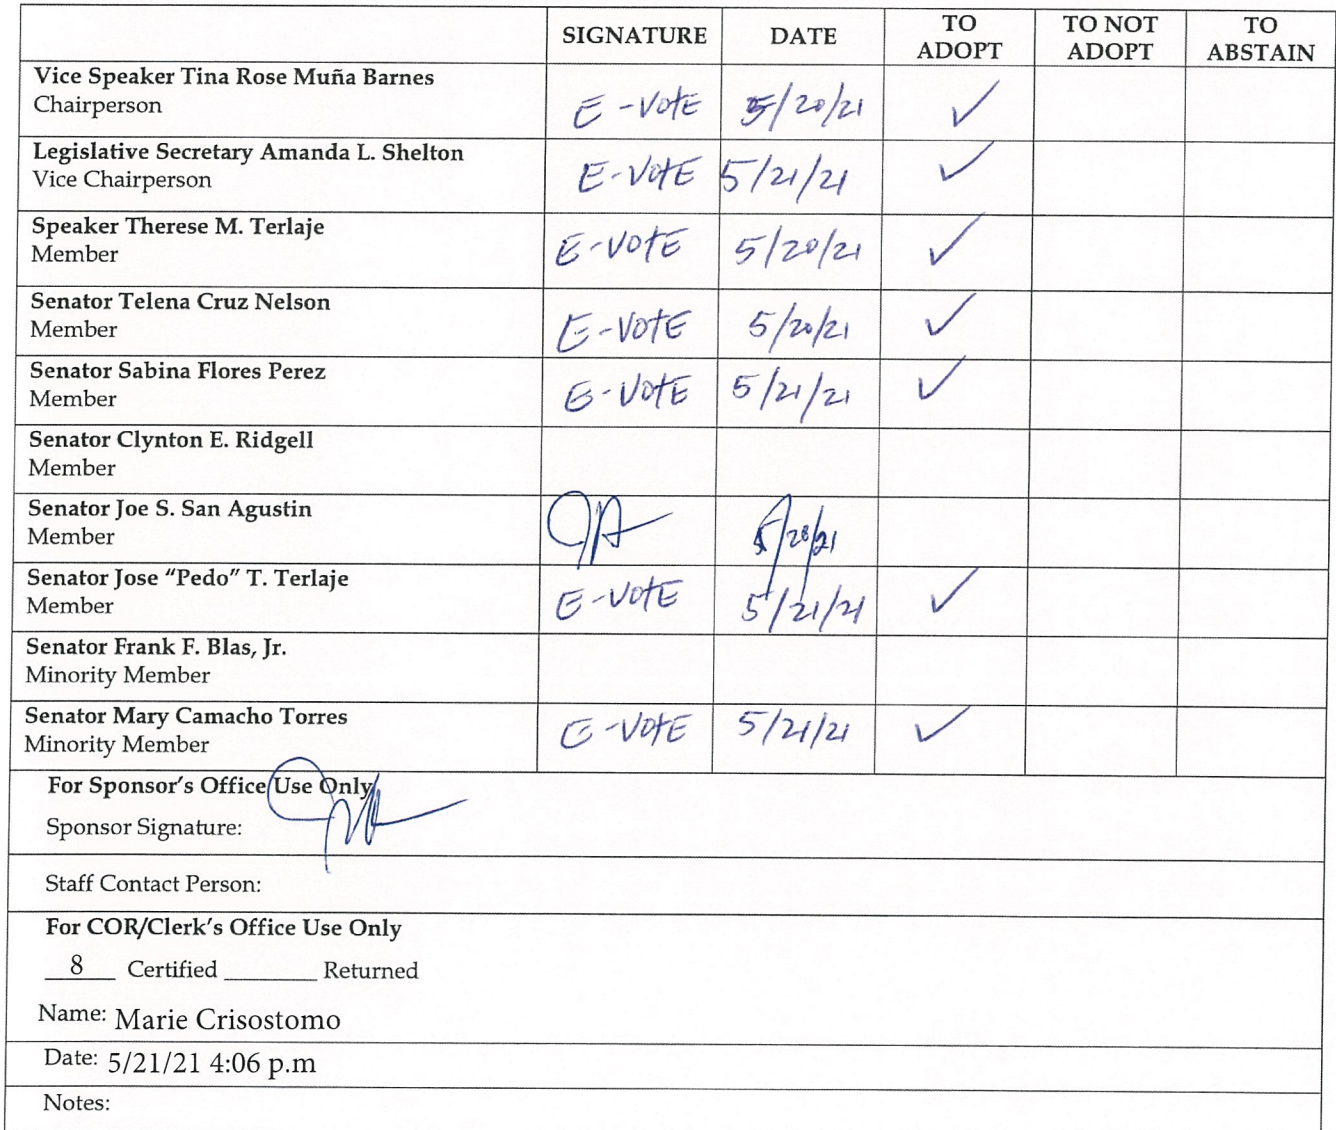 SIGNATURE DATE TO ADOPT TO NOT ADOPT TO ABSTAIN
Vice Speaker Tina Rose Muña Barnes
Chairperson
E-VOTE 5/20/21 ✓
Legislative Secretary Amanda L. Shelton
Vice Chairperson
E-VOTE 5/21/21 ✓
Speaker Therese M. Terlaje
Member
E-VOTE 5/20/21 ✓
Senator Telena Cruz Nelson
Member
E-VOTE 5/20/21 ✓
Senator Sabina Flores Perez
Member
E-VOTE 5/21/21 ✓
Senator Clynton E. Ridgell
Member
Senator Joe S. San Agustin
Member
5/20/21
Senator Jose “Pedo” T. Terlaje
Member
E-VOTE 5/21/21 ✓
Senator Frank F. Blas, Jr.
Minority Member
Senator Mary Camacho Torres
Minority Member
E-VOTE 5/21/21 ✓
For Sponsor’s Office Use Only
Sponsor Signature:
Staff Contact Person:
For COR/Clerk’s Office Use Only
8 Certified ________ Returned
Name: Marie Crisostomo
Date: 5/21/21 4:06 p.m
Notes: